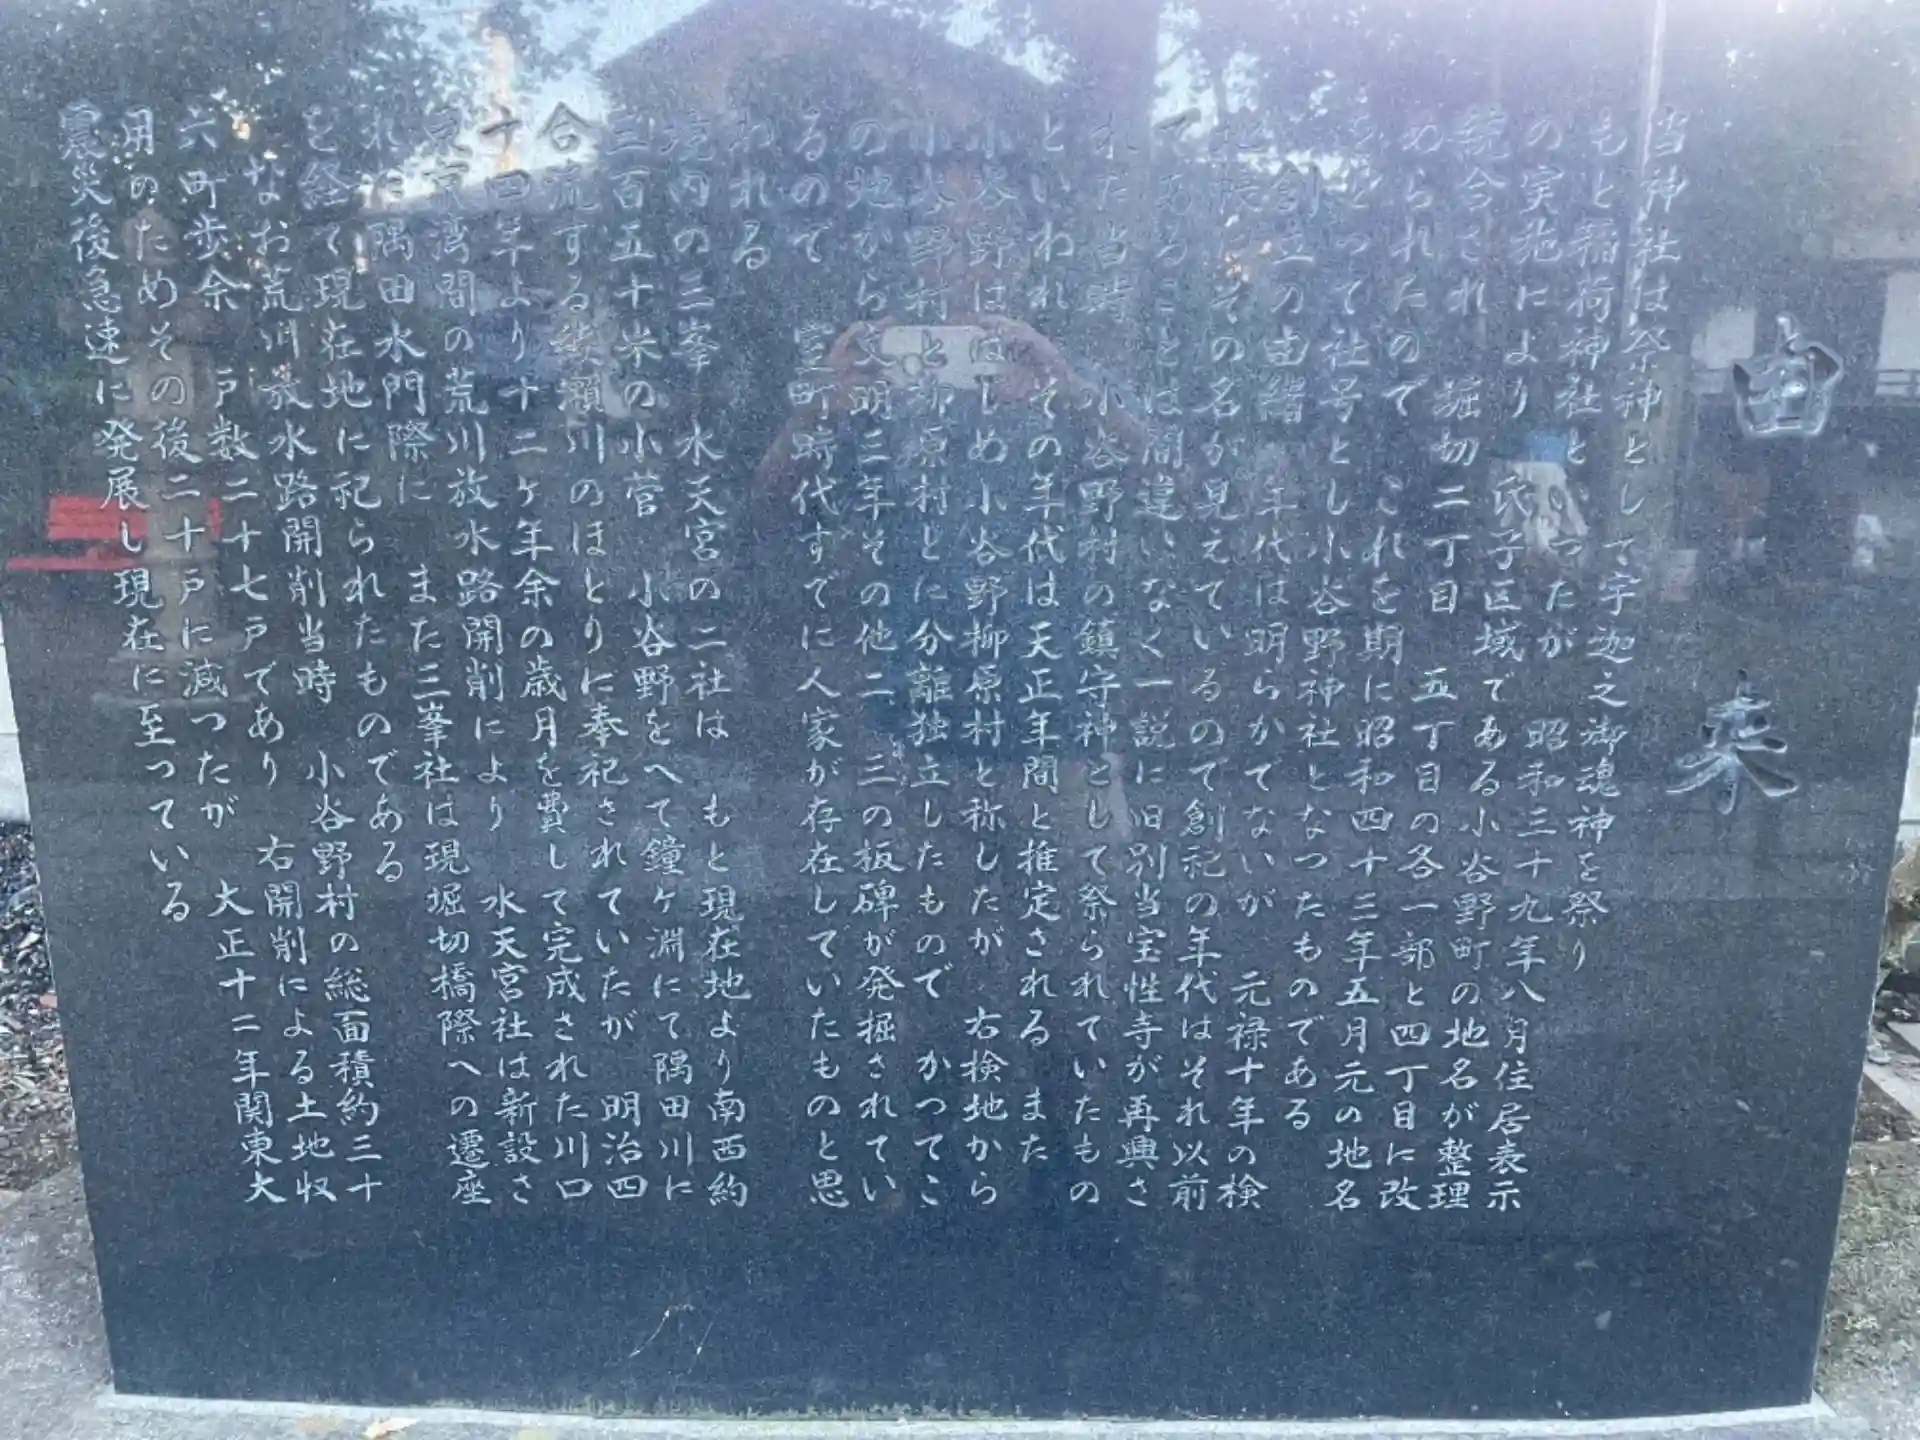 由来
当神社は祭神として宇迦之御魂神を祭り
もと稲荷神社といつたが 昭和三十九年八月住居表示
の実施により 氏子区域である小谷野町の地名が整理
統合され 堀切二丁目 五丁目の各一部と四丁目に改
められたので これを期に昭和四十三年五月元の地名
をとつて社号とし小谷野神社となつたものである
創立の由緒 年代は明らかでないが 元禄十年の検
地帳にその名が見えているので創祀の年代はそれ以前
であることは間違いなく一説に旧別当宝性寺が再興さ
れた当時 小谷野村の鎮守神として祭られていたもの
といわれ その年代は天正年間と推定される また
小谷野はじめ小谷野柳原村と称したが 右検地から
小谷野村と柳原村とに分離独立したもので かつてこ
の地から文明三年その他二、三の板碑が発掘されてい
るので 室町時代すでに人家が存在していたものと思
われる
境内の三峯 水天宮の二社は もと現在地より南西約
三百五十米の小菅 小谷野をへて鐘ケ淵にて隅田川に
合流する綾瀬川のほとりに奉祀されていたが 明治四
十四年より十二ケ年余の歳月を費して完成された川口
東京湾間の荒川放水路開削により 水天宮社は新設さ
れた隅田水門際に また三峯社は現堀切橋際への遷座
を経て現在地に祀られたものである
なお荒川放水路開削当時 小谷野村の総面積約三十
六町歩余 戸数二十七戸であり 右開削による土地収
用のためその後二十戸に減つたが 大正十二年関東大
震災後急速に発展し現在に至っている